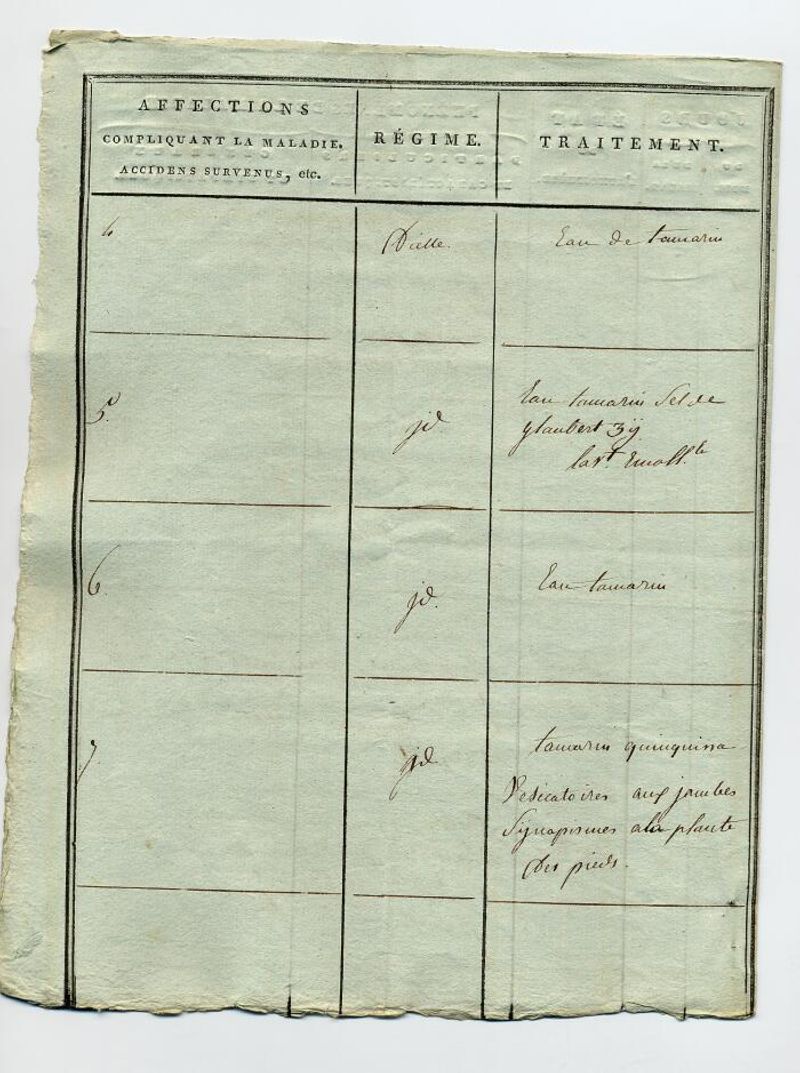 AFFECTIONS
COMPLIQUANT LA MALADIE.
ACCIDENS SURVENUS, etc.
RÉGIME.
TRAITEMENT.
4
Diette.
Eau de tamarin
5.
jd
Eau tamarin Sel de
glaubert ʒij
lavt. Emoll.te
6.
jd.
Eau tamarin
7.
jd
tamarin quinquina
Vesicatoires aux jambes
Synapismes ala plante
Des pieds.